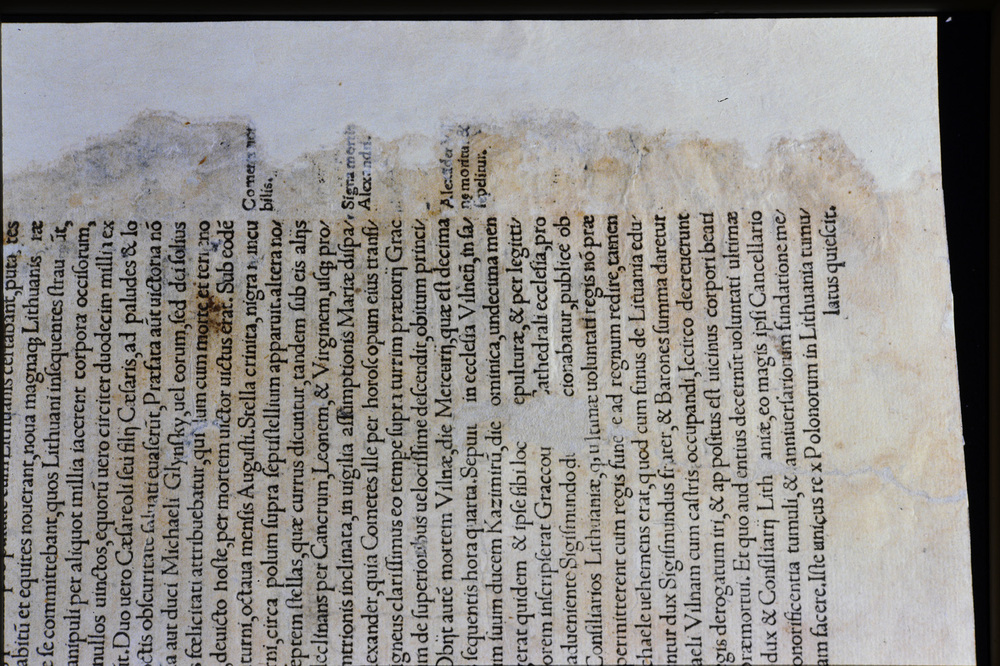 abitū et equites nouerant, noua magnaq; Lithuanis
se se committebant, quos Lithuani insequentes
anipuli per aliquot milia iacerent corpora occisorum,
nullos uinctos, equorū uero circiter duodecim millia ex
it. Duo uero Cæsareoli seu filij Cæsaris, ad paludes & lo
ctis obscuritate Præfata aūt uictoria nō
a aut duci Michaeli Glynsky, uel eorum, sed dei solius
s felicitati attribuebatur, qui iam cum morte
deuicto hoste, per mortem uictor uictus erat. Sub eodē
turni, octaua mensis Augusti. Stella crinita, nigra
rni, circa polum supra septustellium apparuit. altera no/
eptem stellas, quæ currus dicuntur, tandem sub eis alijs
ecclinans per Cancrum, Leonem, & Virginem, usq; pro/
ntrionis inclinata, in uigilia assumptionis Mariæ disipu/
exander, quia Cometes ille per horoscopum eius transi/
igneus clarissimus eo tempe supra turrim prætorij Grac
im de superioribus uelocissime descendit, obitum princi/
Obijt autē mortem Vilnæ, die Mercurij, quæ est decima
sequentis hora quarta. Sepult in ecclesia Vilneñ, in sa/
m suum ducem Kazimirū, die ominica, undecima men
erat quidem & ipse sibi loc epulturæ, & per legitti/
orem inscripserat Graccou athedrali ecclesia, pro
aduenienteo Sigismundo di cionabatur, publice ob
Consiliarios Lithuaniæ, uoluntati regis nō præ
permitterent cum regis fune ad regnum redire, tamen
chaele uehemens erat, quod cum funus de Lituania edu/
ntur dux Sigismundus frater, & Barones summa daretur
aeli Vilnam cum castris occupandi, secrteo decreuerunt
gis derogatum iri, & appositus est uicinus corpori beati
præmortui. Et quo aud entius decernūt uoluntati ultimæ
dux & Consiliarij Lith aniæ, eo magis ipsi Cancellario
onorificentia tumuli, & anniuersariorum fundatione me/
m facere. Iste unicus rex Polonorum in Lithuania tumu/
latus quiescit.
Cometes
bilis.
Signa mortis
Alexandri.
Alexāder
moritu. &
sepelitur.